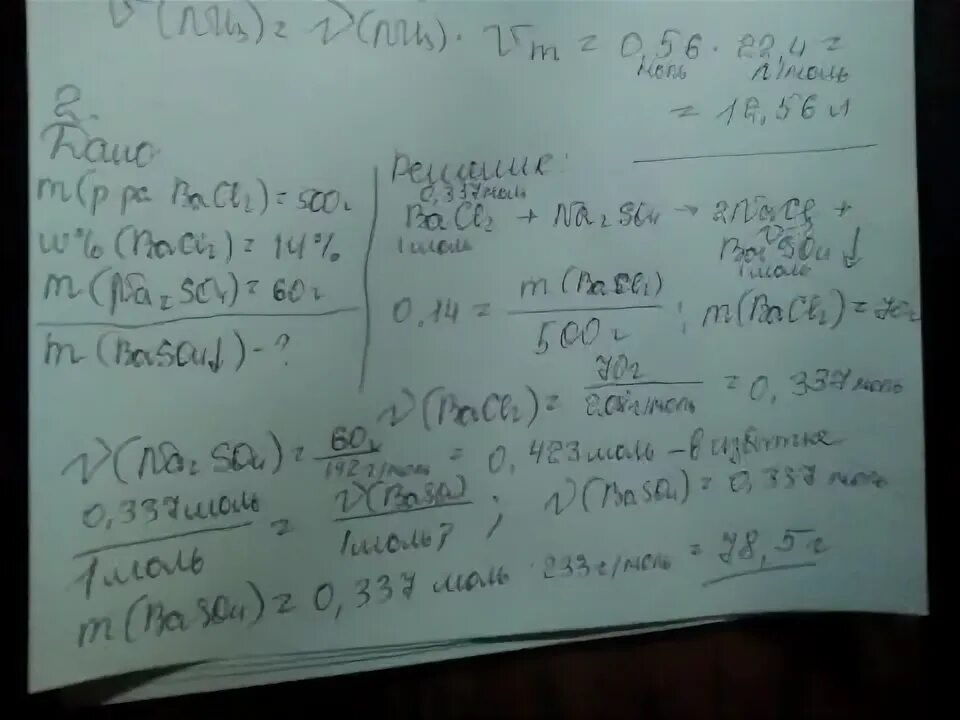 V(NH₃) = ν(NH₃) · Vm = 0,56 · 22,4 =
моль л/моль
= 12,56 л
2.
Дано
m(р ра BaCl₂) = 500г
w% (BaCl₂) = 14%
m(Na₂SO₄) = 60г
m(BaSO₄↓) - ?
Решение:
0,337моль
BaCl₂ + Na₂SO₄ → 2NaCl +
1моль
BaSO₄↓
1моль
0,14 = m(BaCl₂) / 500г ; m(BaCl₂) = 70г
ν(BaCl₂) = 70г / 208г/моль = 0,337моль
ν(Na₂SO₄) = 60г / 142г/моль = 0,423моль - в избытке
0,337моль / 1моль = ν(BaSO₄) / 1моль ; ν(BaSO₄) = 0,337 моль
m(BaSO₄) = 0,337 моль · 233г/моль = 78,5г